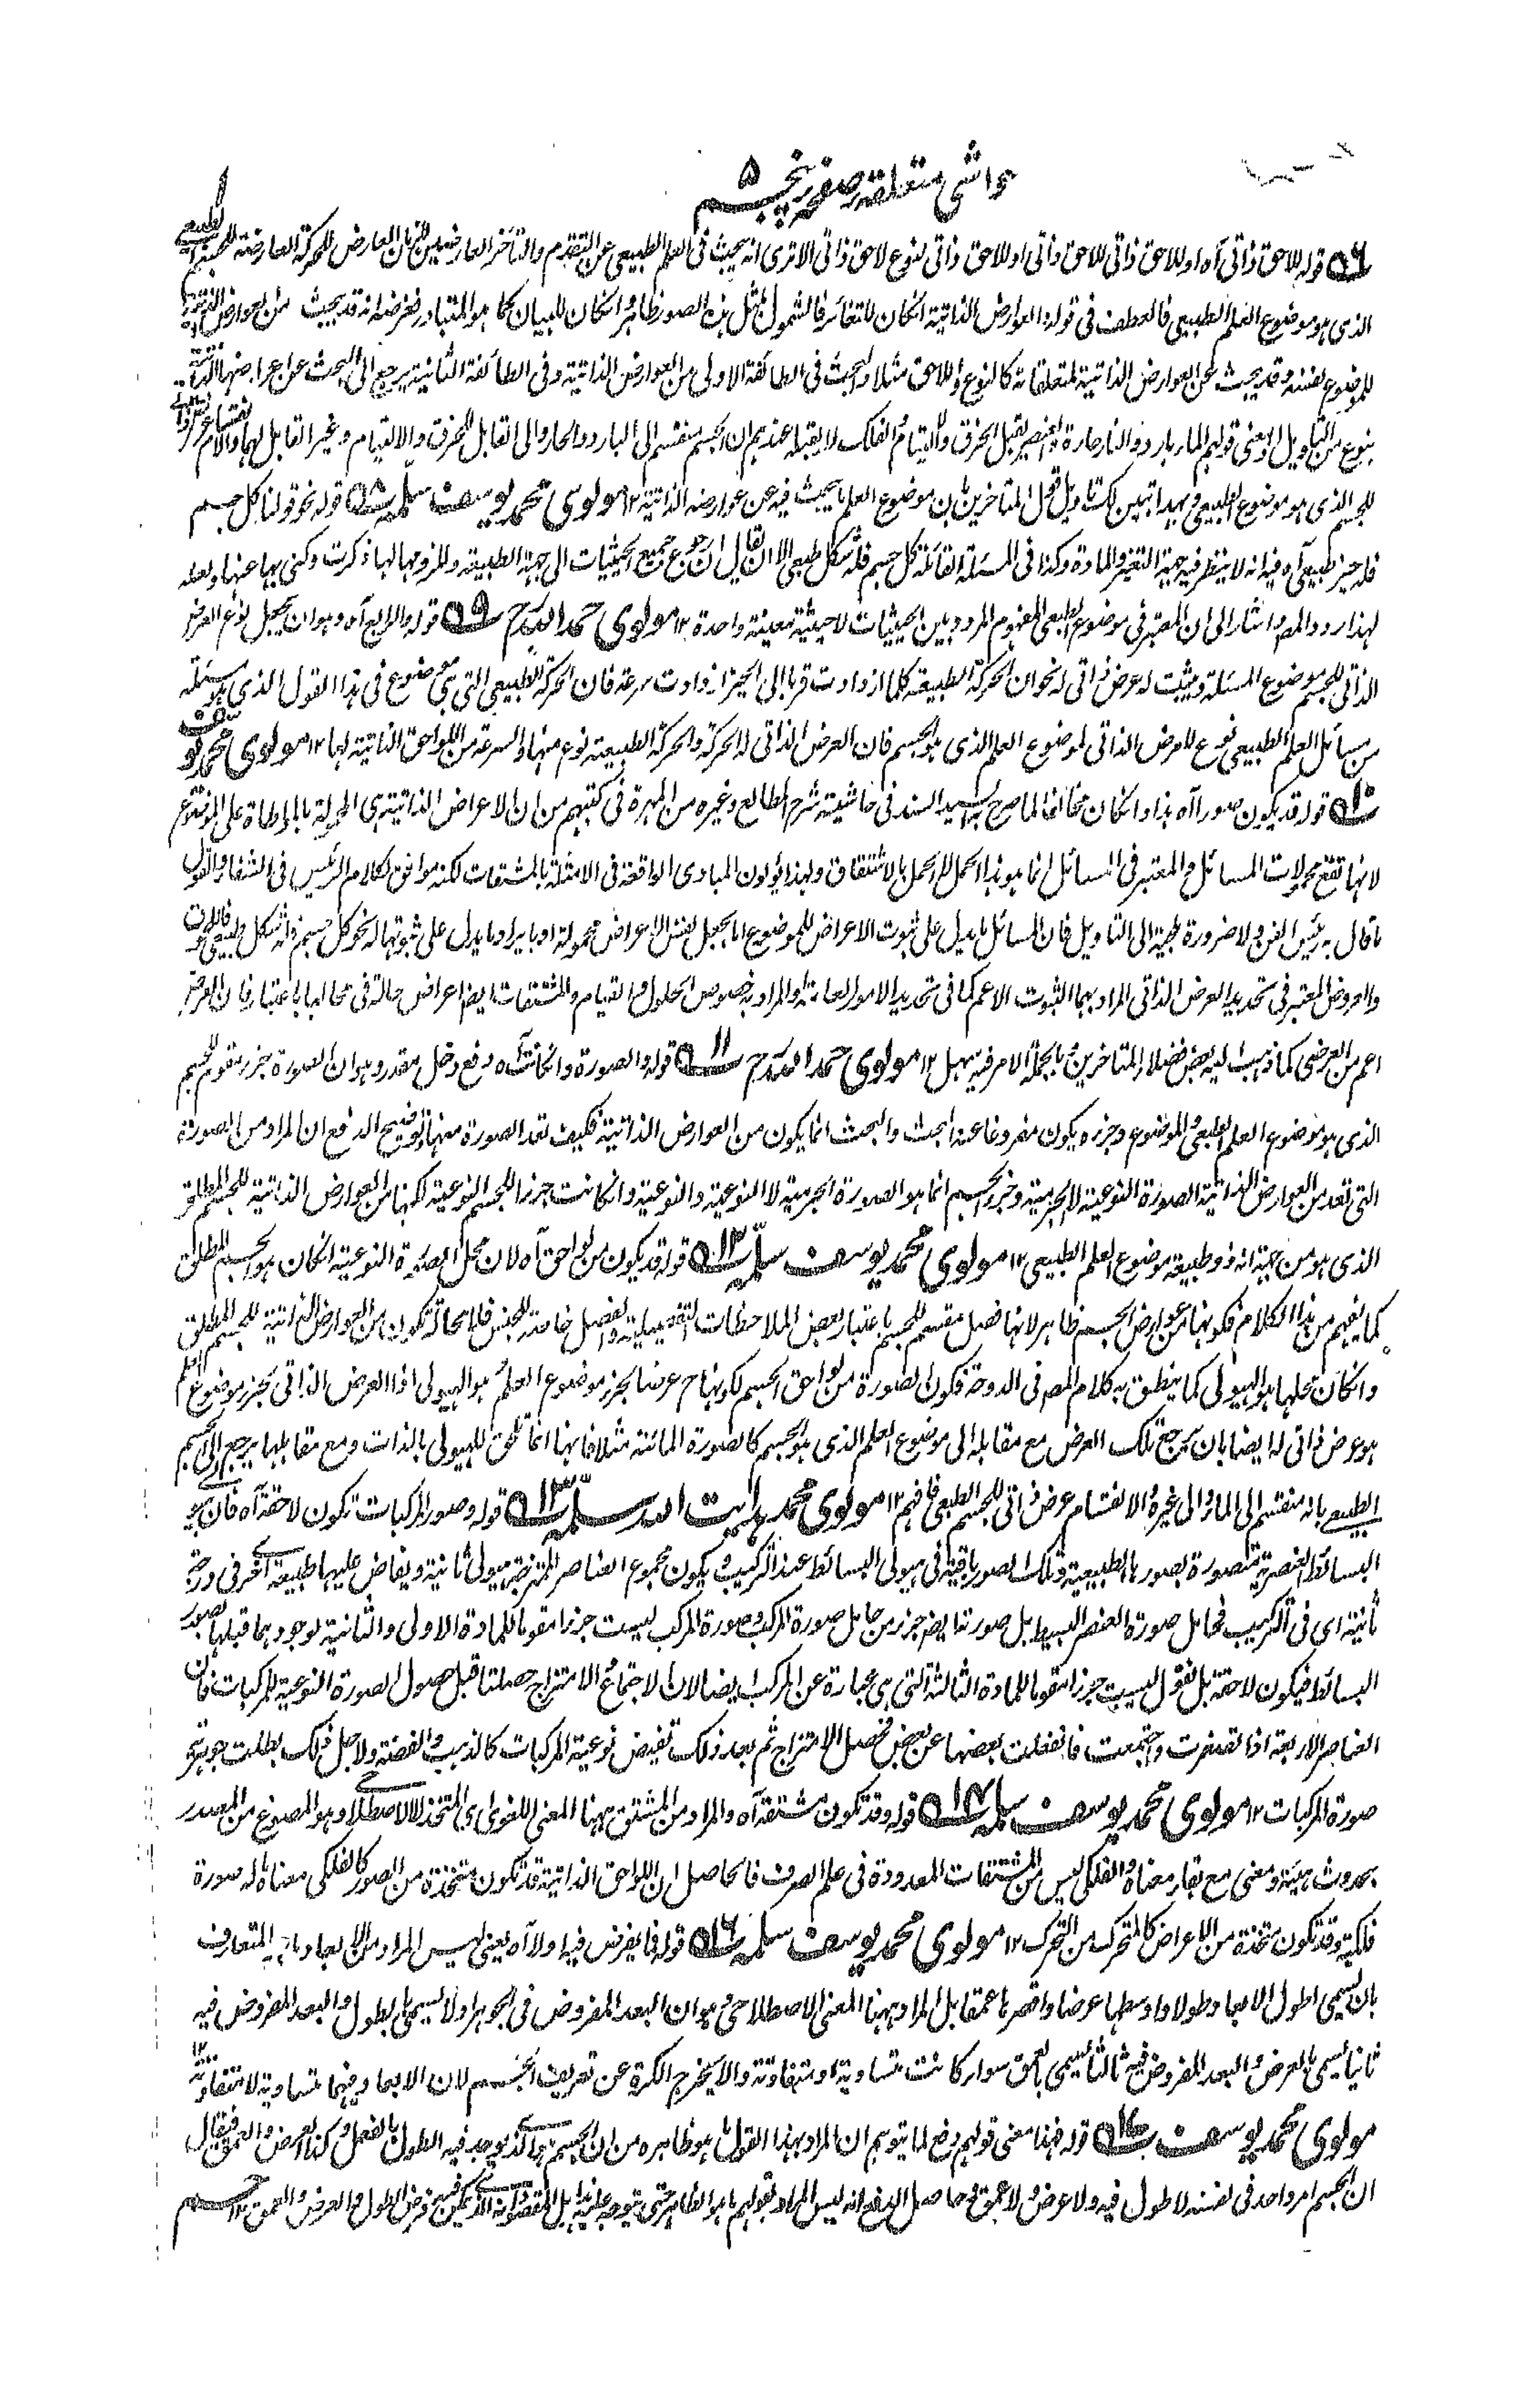 حواشی متعلقہ صفحہ پنجم ۵
قوله للاحق ذاتی آه او للاحق ذاتی للاحق ذاتی او للاحق ذاتی لنوع لاحق ذاتی الا تری انه یبحث فی العلم الطبیعی عن التقدم والتأخر العارضین للزمان العارض للحرکة العارضة للجسم الطبیعی
الذی هو موضوع العلم الطبیعی فالعطف فی قوله والعوارض الذاتیة انکان للتغائر فالشمول لمثل هذه الصور ظاهر وانکان للبیان کما هو المتبادر فغرضه انه قد یبحث عن العوارض الذاتیة
للموضوع نفسه وقد یبحث عن العوارض الذاتیة لمتعلقاته کالنوع واللاحق مثلا والبحث فی الطائفة الاولی من العوارض الذاتیة وفی الطائفة الثانیة یرجع الی البحث عن اعراضها الذاتیة
بنوع من التاویل اذ معنی قولهم الماء بارد والنار حارة والعنصر یقبل الخرق والالتیام والفلک لا یقبله عندهم ان الجسم منقسم الی البارد والحار والی القابل للخرق والالتیام وغیر القابل لهما
للجسم الذی هو موضوع الطبیعی وبهذا تبین لک تاویل قول المتاخرین بان موضوع العلم ما یبحث فیه عن عوارضه الذاتیة ۱۲ مولوی محمد یوسف سلمه قوله نحو قولنا کل جسم
فله حیز طبیعی آه فیه انه لا ینظر فیه جهة التغیر والمادة وکذا فی المسئلة القائلة کل جسم فله شکل طبیعی الا ان یقال ان رجوع جمیع الحیثیات الی جهة الطبیعة وللزومها لها ذکرت وکنی بها عنها ولعله
لهذا ردد المصـ واشار الی ان المعتبر فی موضوع الطبعی المفهوم المردد بین الحیثیات لا حیثیة معینة واحدة ۱۲ مولوی حمد الله رح ۹ قوله والرابع آه وهو ان یجعل نوع العرض
الذاتی للجسم موضوع المسئلة ویثبت له عرض ذاتی له نحو ان الحرکة الطبیعیة کلما ازدادت قربا الی الحیز ازدادت سرعة فان الحرکة الطبیعی التی هی موضوع فی هذا القول الذی هو مسئلة
من مسائل العلم الطبیعی نوع للعرض الذاتی لموضوع العلم الذی هو الجسم فان العرض الذاتی له الحرکة والحرکة الطبیعیة نوع منها والسرعة من اللواحق الذاتیة لها ۱۲ مولوی محمد یوسف
۱۰ قوله قد یکون صورا آه هذا وانکان مخالفا لما صرح به السید السند فی حاشیته شرح المطالع وغیره من المهرة فی کتبهم من ان الاعراض الذاتیة هی المحمولة بالمواطاة علی الموضوع
لانها تقع محمولات المسائل والمعتبر فی المسائل انما هو هذا الحمل لا الحمل بالاشتقاق ولهذا یؤولون المبادی الواقعة فی الامثلة بالمشتقات لکنه موافق لکلام الرئیس فی الشفاء والقول
ما قال به رئیس الفن ولا ضرورة ملجیة الی التاویل فان المسائل ما یدل علی ثبوت الاعراض للموضوع اما بجعل نفس الاعراض محمولة او بایراد ما یدل علی ثبوتها له نحو کل جسم فله شکل طبیعی
والعروض المعتبر فی تحدید العرض الذاتی المراد بهما الثبوت الاعم کما فی تحدید الامور العامة والمراد به خصوص الحلول والقیام والمشتقات ایضا اعراض حالة فی محالها باعتبار فان العرض
اعم من العرضی کما ذهب الیه بعض فضلاء المتاخرین وبالجملة الامر فیه سهل ۱۲ مولوی حمد الله رح ۱۱ قوله والصورة وانکانت آه دفع دخل مقدر وهو ان الصورة جزء مقوم للجسم
الذی هو موضوع العلم الطبیعی والموضوع وجزءه یکون مفروغا عنه البحث والبحث انما یکون من العوارض الذاتیة فکیف تعد الصورة منها وتوضیح الدفع ان المراد من الصورة
التی تعد من العوارض الذاتیة الصورة النوعیة لا الجرمیة وجزء الجسم انما هو الصورة الجرمیة لا النوعیة والنوعیة وانکانت جزءا للجسم النوعیة لکنها من العوارض الذاتیة للجسم المطلق
الذی هو من جهة انه ذو طبیعة موضوع العلم الطبیعی ۱۲ مولوی محمد یوسف سلمه ۱۲ قوله قد یکون من لواحق آه لان محل الصورة النوعیة انکان هو الجسم المطلق
کما یفهم من هذا الکلام فکونها من عوارض الجسم ظاهر لانها فصل مقسم للجسم باعتبار بعض الملاحظات التفصیلیة والفصل خاصة للجنس فلا محالة تکون من العوارض الذاتیة للجسم المطلق
وانکان محلها هو الهیولی کما ینطق به کلام المصـ فی الدوحة فکون الصورة من لواحق الجسم لکونها ح عرضا لجزء موضوع العلم هو الهیولی اذ العرض الذاتی لجزء موضوع العلم
هو عرض ذاتی له ایضا بان یرجع تلک العرض مع مقابله الی موضوع العلم الذی هو الجسم کالصورة المائیة مثلا فانها انما تلحق للهیولی بالذات ومع مقابلها یرجع الی الجسم
الطبیعی بانه منقسم الی الماء والی غیره والانقسام عرض ذاتی للجسم الطبعی فافهم ۱۲ مولوی محمد هدایت الله سلمه ۱۳ قوله وصور المرکبات تکون لاحقة آه فان
البسائط العنصریة متصورة بصورها الطبیعیة وتلک الصور باقیة فی هیولی البسائط عند الترکیب ویکون مجموع العناصر الممتزجة هیولی ثانیة ویفاض علیها طبیعة اخری فی درجة
ثانیة ای فی الترکیب فحامل صورة العنصر البسیط بل صورته ایضا جزء من حامل صورة المرکب وصورة المرکب لیست جزءا مقوما للمادة الاولی والثانیة لوجودهما قبلها بصور
البسائط فیکون لاحقة بل نقول لیست جزءا مقوما للمادة الثالثة التی هی عبارة عن المرکب ایضا لان الاجتماع والامتزاج حصلتا قبل حصول الصورة النوعیة للمرکبات فان
العناصر الاربعة اذا تصغرت واجتمعت فانفعلت بعضها عن بعض فحصل الامتزاج ثم بعد ذلک تفیض نوعیة المرکبات کالذهب والفضة ولاجل ذلک بطلت جوهریة
صورة المرکبات ۱۲ مولوی محمد یوسف سلمه ۱۴ قوله وقد تکون مشتقة آه والمراد من المشتق ههنا المعنی اللغوی ای المتخذ لا الاصطلاحی وهو المصوغ من المصدر
بحدوث هیئة ومعنی مع بقاء معناه والفلکی لیس من المشتقات المعدودة فی علم الصرف فالحاصل ان اللواحق الذاتیة قد تکون متخذة من الصور کالفلکی معناه ما له صورة
فلکیة وقد تکون متخذة من الاعراض کالمتحرک من التحرک ۱۲ مولوی محمد یوسف سلمه ۱۶ قوله فما یفرض فیه اولا آه یعنی لیس المراد من الابعاد ما هو المتعارف
بان یسمی اطول الابعاد طولا واوسطها عرضا واقصرها عمقا بل المراد ههنا المعنی الاصطلاحی وهو ان البعد المفروض فی الجوهر اولا یسمی بالطول والبعد المفروض فیه
ثانیا یسمی بالعرض والبعد المفروض فیه ثالثا یسمی بالعمق سواء کانت متساویة او متفاوتة والا یخرج الکرة عن تعریف الجسم لان الابعاد فیها متساویة لا متفاوتة ۱۲
مولوی محمد یوسف قوله فهذا معنی قولهم دفع لما یتوهم ان المراد بهذا القول ما هو ظاهره من ان الجسم هو الذی یوجد فیه الطول بالفعل وکذا العرض والعمق فیقال
ان الجسم امر واحد فی نفسه لا طول فیه ولا عرض ولا عمق وحاصل الدفع انه لیس المراد بقولهم ما هو الظاهر حتی یتوجه علیه هذا بل المقصود انه الذی یمکن فیه فرض الطول والعرض والعمق ۱۲